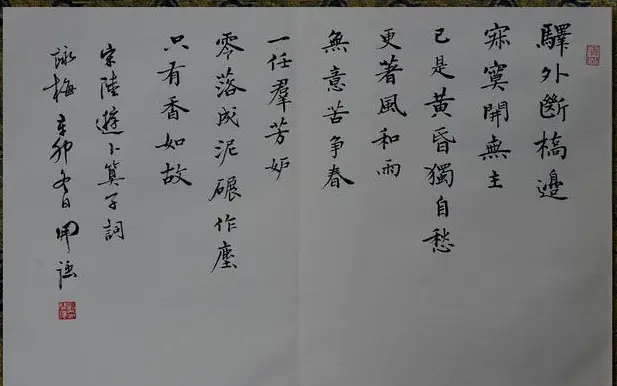 驛外斷橋邊
寂寞開無主
已是黃昏獨自愁
更著風和雨
無意苦爭春
一任羣芳妒
零落成泥碾作塵
只有香如故
宋陸遊卜算子詞
詠梅辛卯冬日